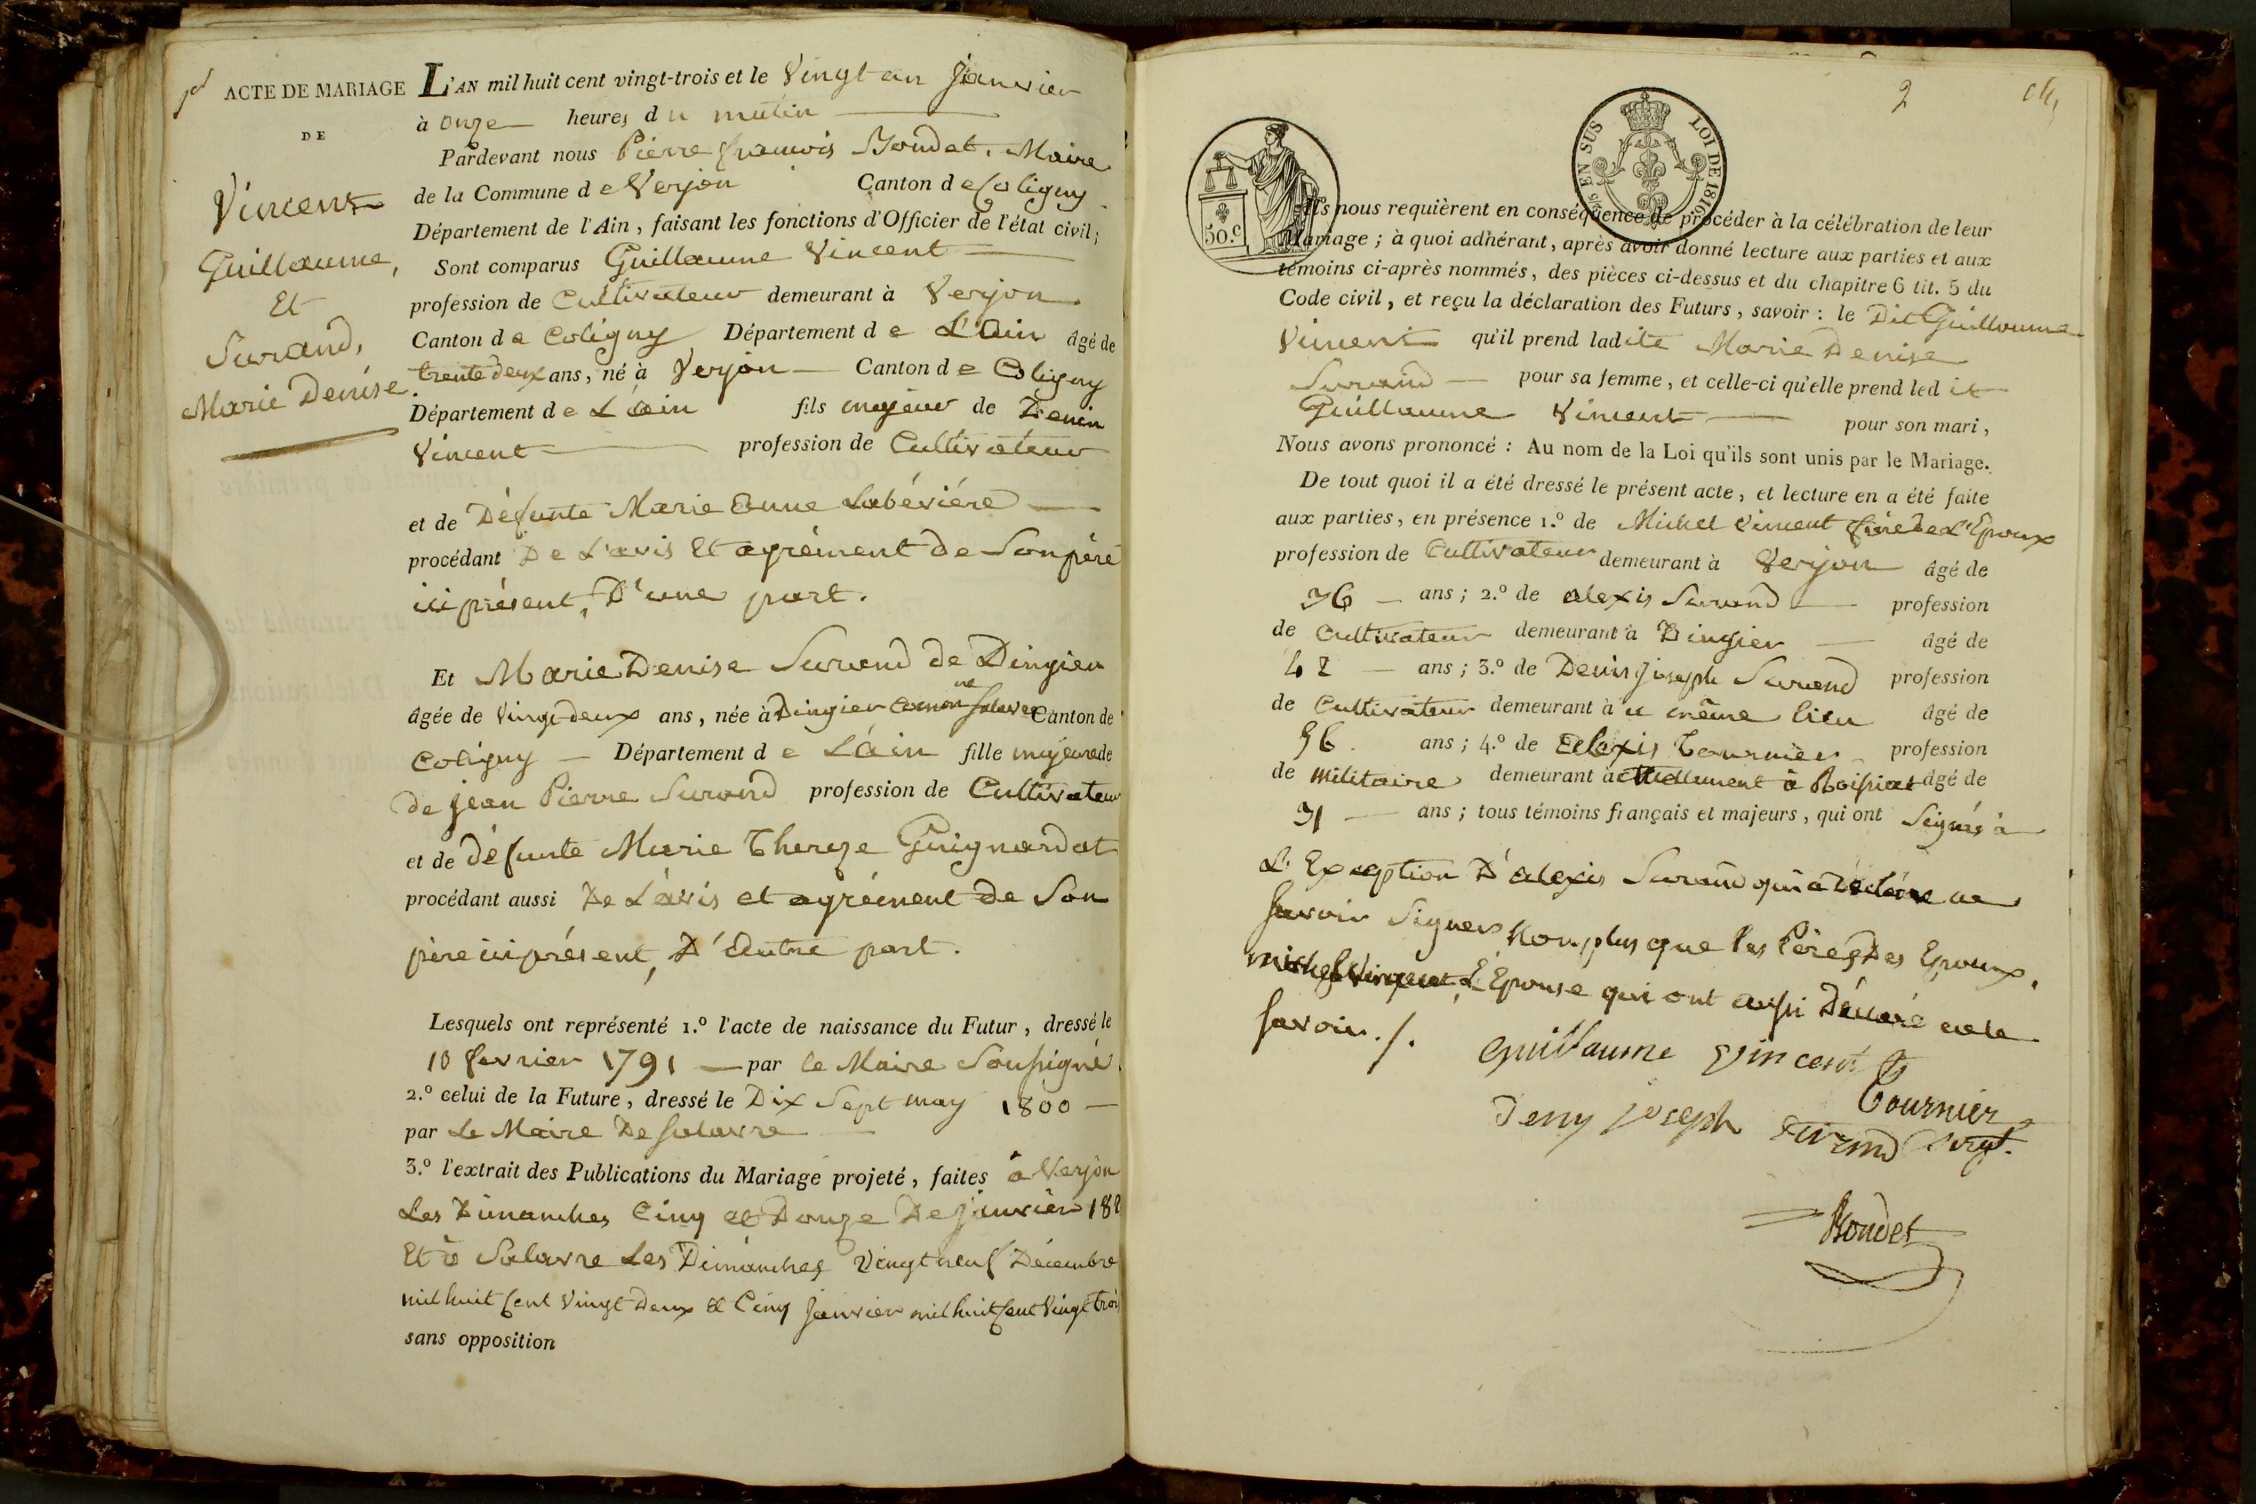 1er
ACTE DE MARIAGE
DE
Vincent
Guillaume,
Et
Surand,
Marie Denise.
L'AN mil huit cent vingt-trois et le Vingt un Janvier
à onze heures du matin
Pardevant nous Pierre françois Bondet, Maire
de la Commune de Verjon Canton de Coligny
Département de l'Ain, faisant les fonctions d'Officier de l'état civil;
Sont comparus Guillaume Vincent
profession de Cultivateur demeurant à Verjon
Canton de Coligny Département de L'Ain âgé de
trente deux ans, né à Verjon Canton de Coligny
Département de L'ain fils majeur de Denin
Vincent profession de Cultivateur
et de Défunte Marie Anne Labévière
procédant De L'avis Et agrément de Son père
ici présent, D'une part.
Et Marie Denise Surand de Dingier
âgée de Vingt deux ans, née à Dingier Commune Salavre Canton de
Coligny Département de L'ain fille majeure de
de Jean Pierre Surand profession de Cultivateur
et de défunte Marie Thereze Guignardat
procédant aussi De L'avis et agrément de Son
père ici présent, D'Autre part.
Lesquels ont représenté 1.º l'acte de naissance du Futur, dressé le
10 fevrier 1791 par le Maire Soussigné.
2.º celui de la Future, dressé le Dix Sept may 1800
par Le Maire De Salavre
3.º l'extrait des Publications du Mariage projeté, faites à Verjon
Les Dimanches Cinq et Douze De Janvier 182
Et à Salavre Les Dimanches Vingt neuf Décembre
mil huit Cent Vingt Deux & Cinq Janvier mil huit Cent Vingt trois
sans opposition
2
50.c
EN SUS
LOI DE 1816
Ils nous requièrent en conséquence de procéder à la célébration de leur
Mariage; à quoi adhérant, après avoir donné lecture aux parties et aux
témoins ci-après nommés, des pièces ci-dessus et du chapitre 6 tit. 5 du
Code civil, et reçu la déclaration des Futurs, savoir: le Dit Guillaume
Vincent qu'il prend ladite Marie Denise
Surand pour sa femme, et celle-ci qu'elle prend ledit
Guillaume Vincent pour son mari,
Nous avons prononcé: Au nom de la Loi qu'ils sont unis par le Mariage.
De tout quoi il a été dressé le présent acte, et lecture en a été faite
aux parties, en présence 1.º de Michel Vincent frère de L'Epoux
profession de Cultivateur demeurant à Verjon âgé de
36 ans; 2.º de alexis Surand profession
de Cultivateur demeurant à Dingier âgé de
42 ans; 3.º de Denis Joseph Surand profession
de Cultivateur demeurant à u même lieu âgé de
56 ans; 4.º de Alexis Tournier profession
de militaire demeurant actuellement à Roissiat âgé de
31 ans; tous témoins français et majeurs, qui ont Signés à
L'Exception D'alexis Surand qui a déclaré ne
Savoir Signer Non plus que les Pères Des Epoux,
michel Vincent & L'Epouse qui ont aussi Déclaré ne le
Savoir ./.
Guillaume Vincent
Tournier
Deny joseph Surand Sergt.
Bondet